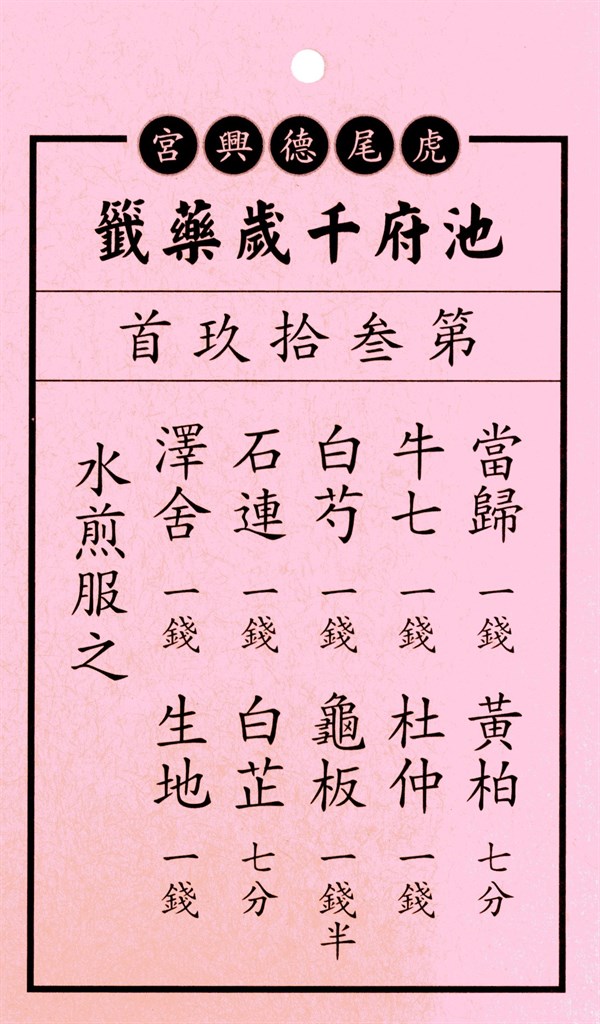 虎尾德興宮
池府千歲藥籤
第叁拾玖首
當歸 一錢 黃柏 七分
牛七 一錢 杜仲 一錢
白芍 一錢 龜板 一錢半
石連 一錢 白芷 七分
澤舍 一錢 生地 一錢
水煎服之